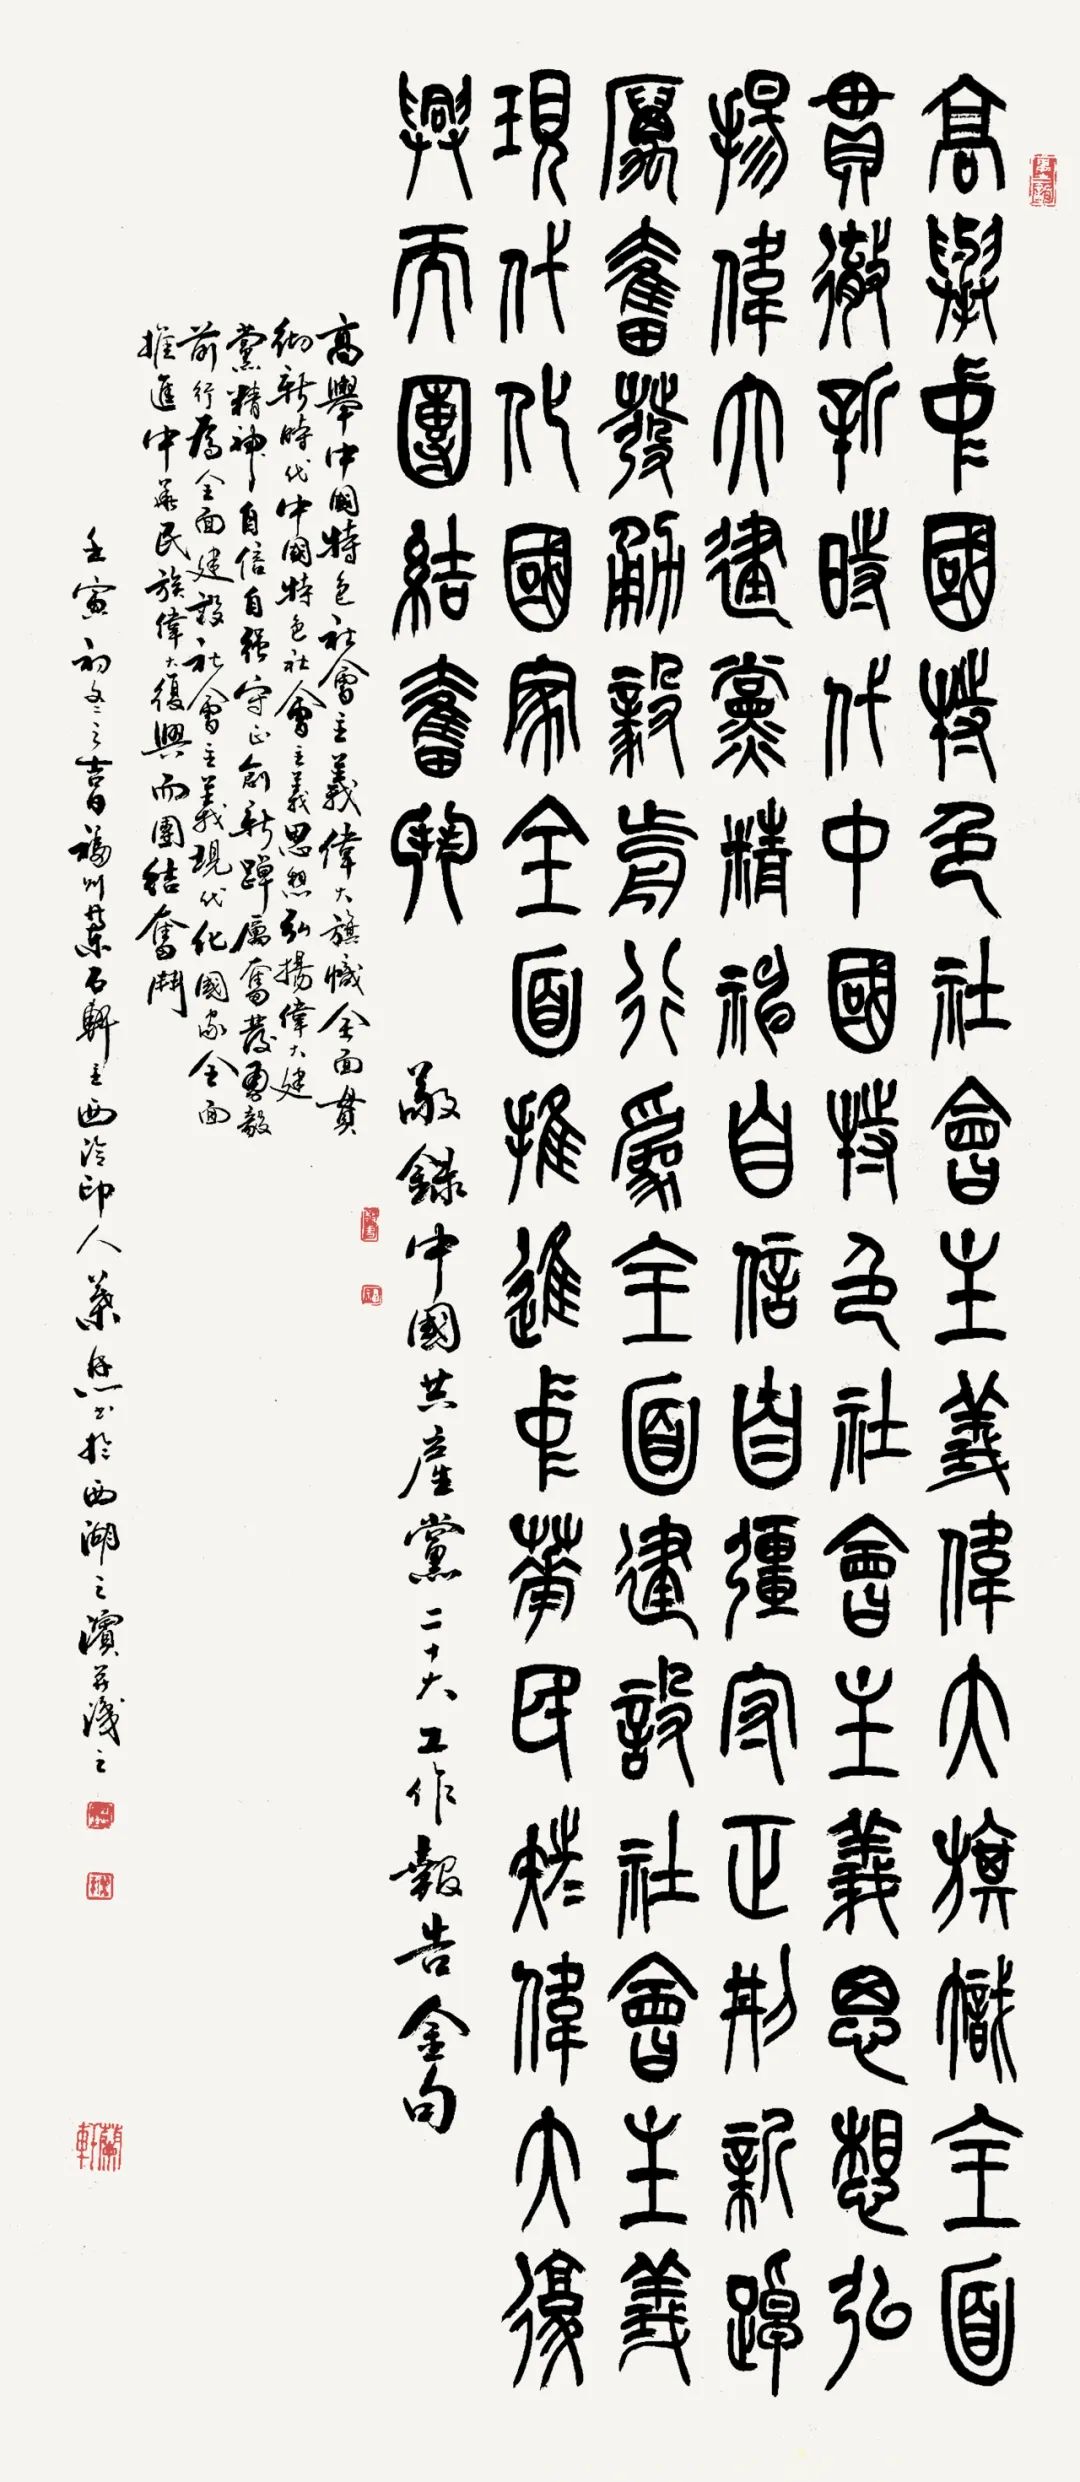 高舉中國特色社會主義偉大旗幟全面
貫徹新時代中國特色社會主義思想弘
揚偉大建黨精神自信自彊守正創新踔
厲奮發勇毅前行為全面建設社會主義
現代化國家全面推進中華民族偉大復
興而團結奮鬥
敬錄中國共產黨二十大工作報告金句
高舉中國特色社會主義偉大旗幟全面貫
徹新時代中國特色社會主義思想弘揚偉大建
黨精神自信自强守正創新踔厲奮發勇毅
前行為全面建設社會主義現代化國家全面
推進中華民族偉大復興而團結奮鬥
壬寅初冬之吉福州葉石軒主西泠印人葉書於西湖之濱並識之
蘭軒